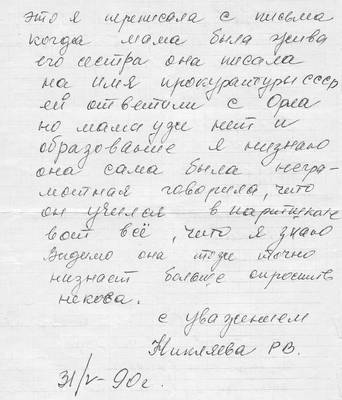 это я переписала с письма
когда мама была жива
его сестра она писала
на имя прокурантуры СССР
ей ответили с Орла
но мамы узи нет и
образование я низнаю
она сама была негра-
мотная говорила, что
он учился в
вот всё, что я знаю
видимо она този точно
низнаит больше опросить
некова.
с уважением
Никляева Р.В.
31/V-90г.